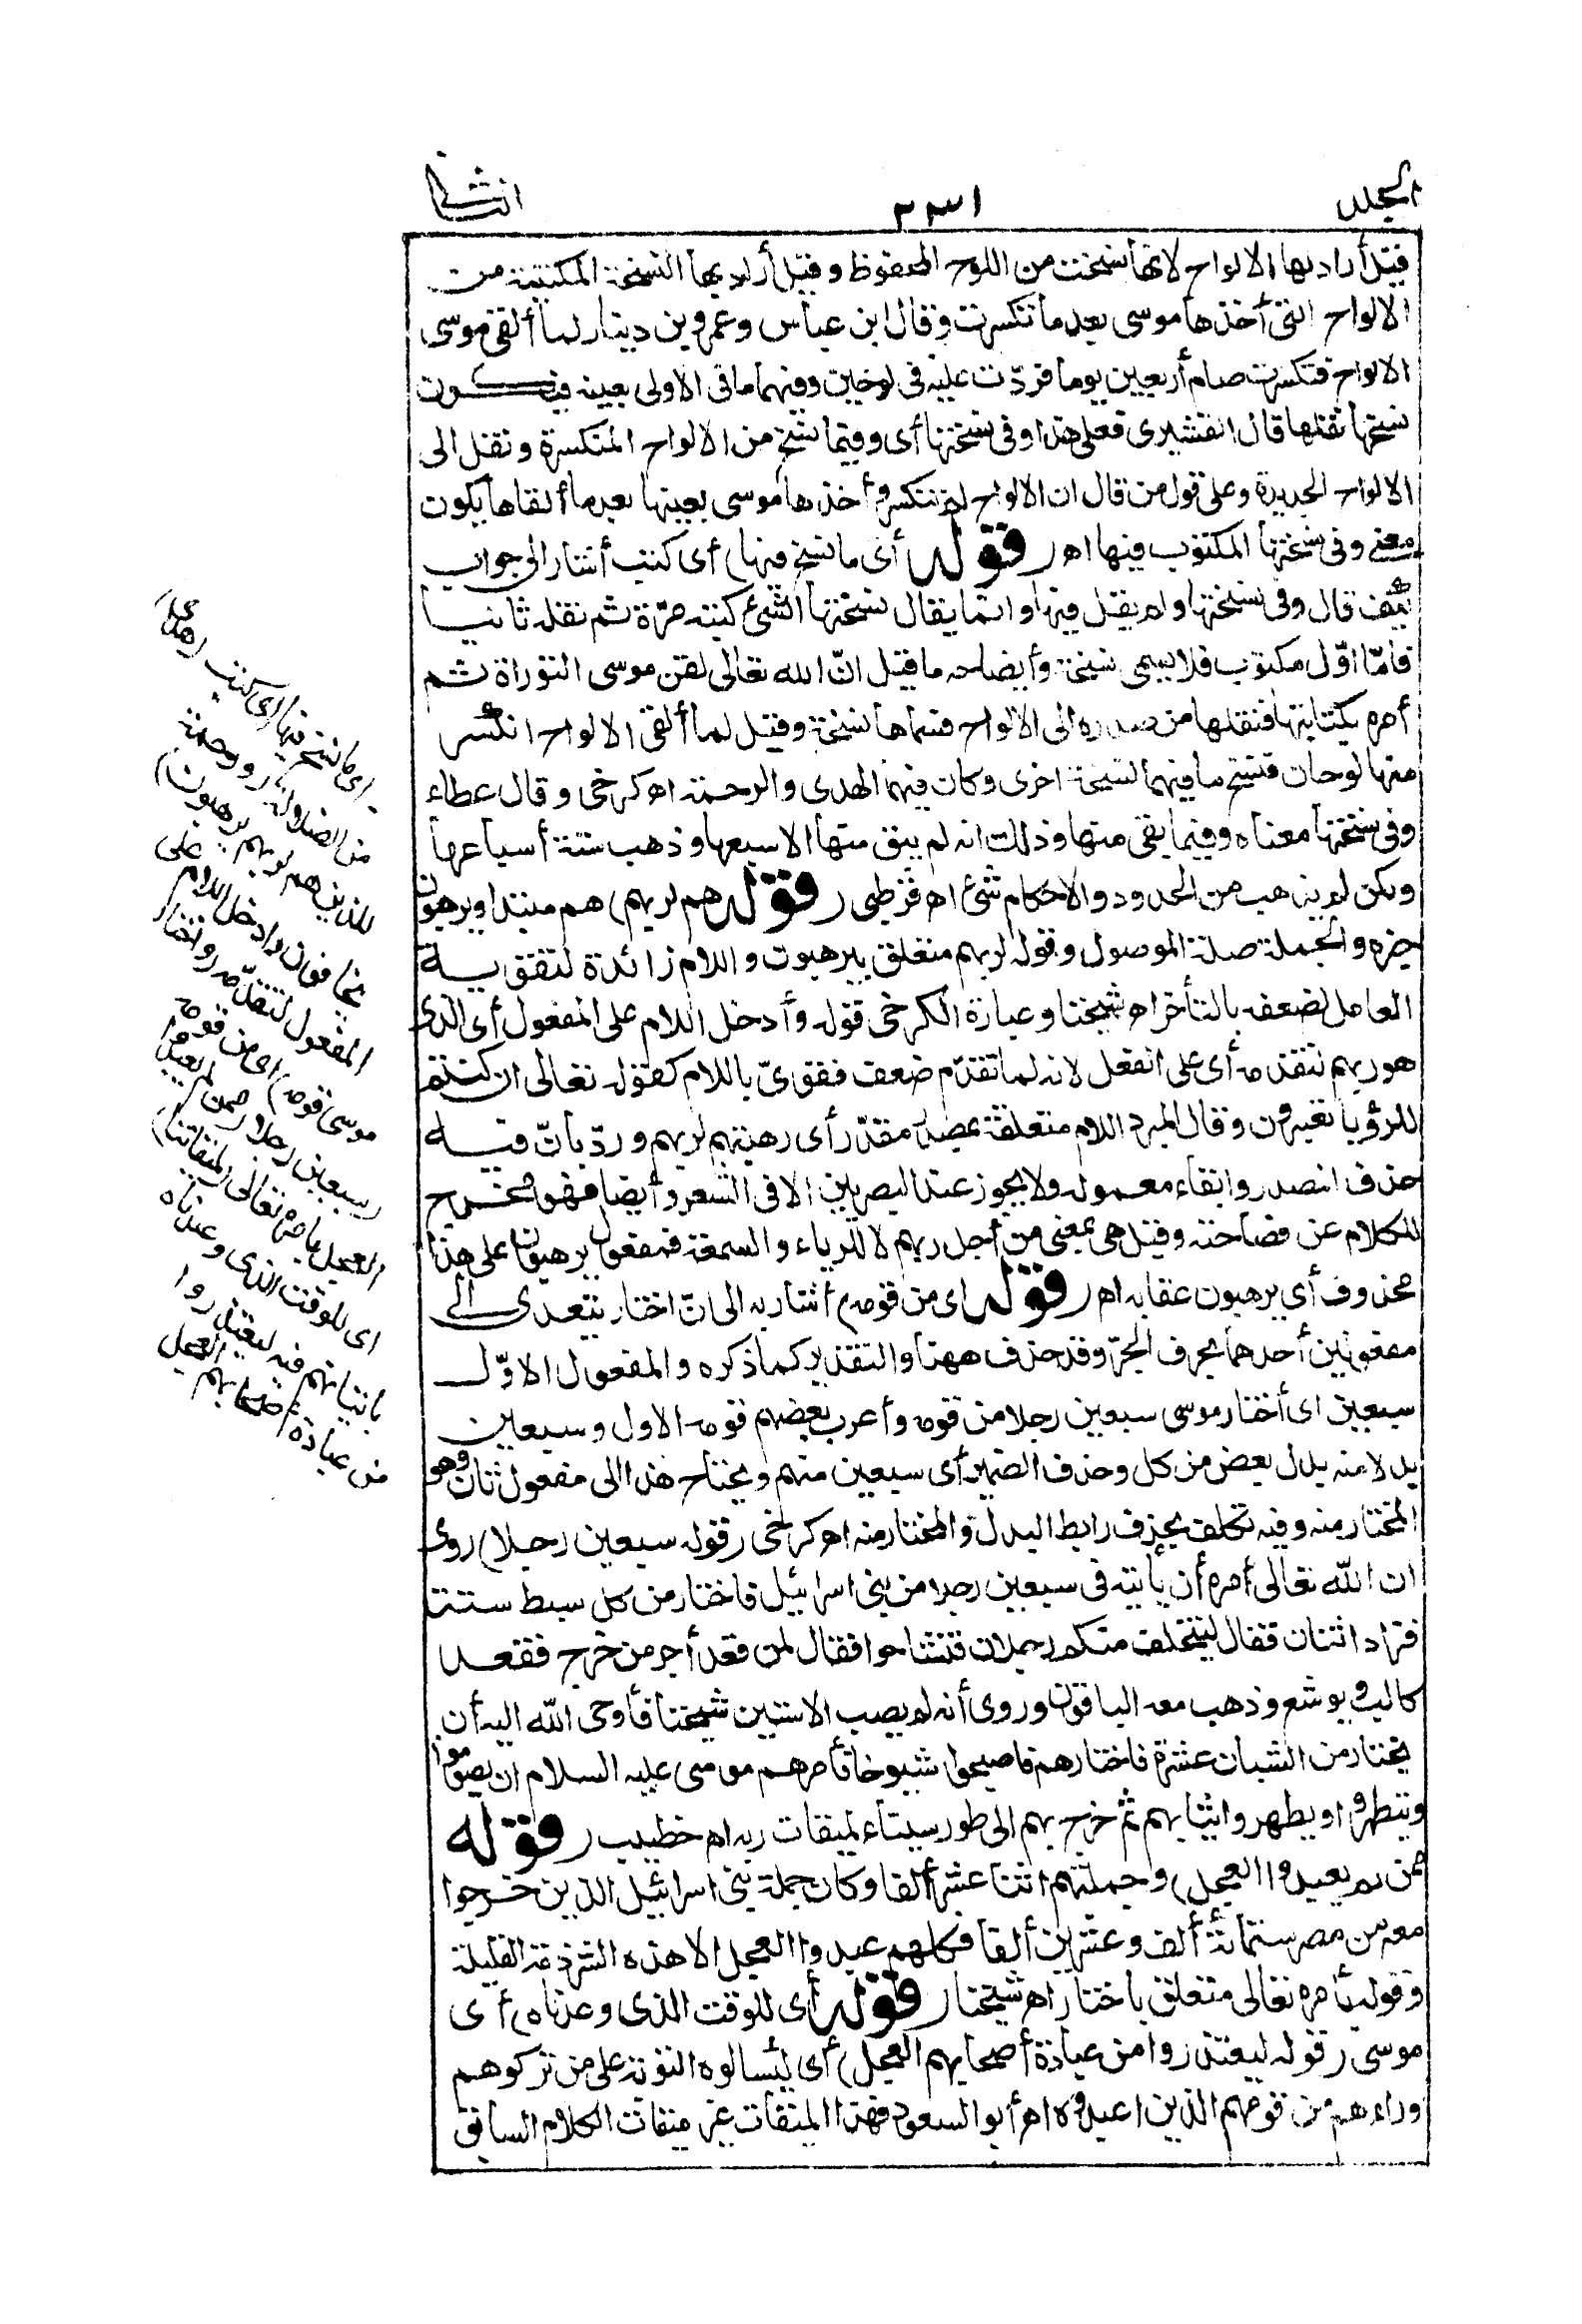 المجلد
٢٣١
الثانى
قيل أراد بها الالواح لانها نسخت من اللوح المحفوظ وقيل أراد بها النسخة المكتتبة من
الالواح التى أخذها موسى بعد ما تكسرت وقال ابن عباس وعمرو بن دينار لما ألقى موسى
الالواح فتكسرت صام أربعين يوما فردّت عليه فى لوحين وفيهما ما فى الاولى بعينه فيكون
نسختها نقلها قال القشيرى فعلى هذا وفى نسختها أى وفيما نسخ من الالواح المتكسرة ونقل الى
الالواح الجديدة وعلى قول من قال ان الالواح لم تتكسر وأخذها موسى بعينها بعد ما ألقاها يكون
معنى وفى نسختها المكتوب فيها اه (قوله أى ما نسخ فيها) أى كتب أشار الى جواب
كيف قال وفى نسختها ولم يقل فيها وانما يقال نسختها لشئ كتب مرّة ثم نقله ثانيا
فامّا اوّل مكتوب فلا يسمى نسخة وأيضاحه ما قيل انّ الله تعالى لقن موسى التوراة ثم
أمره بكتابتها فنقلها من صدره الى الالواح فسماها نسخة وقيل لما ألقى الالواح انكسر
منها لوحان فنسخ ما فيهما نسخة اخرى وكان فيهما الهدى والرحمة اه كرخى وقال عطاء
وفى نسختها معناه وفيما بقى منها وذلك انه لم يبق منها الا سبعها وذهب ستة أسباعها
ولكن لم يذهب من الحدود والاحكام شئ اه قرطبى (قوله هم لربهم) هم مبتدا ويرهبون
خبره والجملة صلة الموصول وقوله لربهم متعلق بيرهبون واللام زائدة لتقوية
العامل لضعفه بالتأخر اه شيخنا وعبارة الكرخى قوله وأدخل اللام على المفعول أى الذى
هو ربهم لتقدمه أى على الفعل لانه لما تقدّم ضعف فقوىّ باللام كقوله تعالى ان كنتم
للرؤيا تعبرون وقال المبرد اللام متعلقة بمصدر مقدّر أى رهبتهم لربهم وردّ بانّ فيه
حذف المصدر وابقاء معموله ولا يجوز عند البصريين الا فى الشعر وأيضا فهو مخرج
للكلام عن فصاحته وقيل هى بمعنى من أجل ربهم لا للرياء والسمعة فمفعول يرهبون على هذا
محذوف أى يرهبون عقابه اه (قوله اى من قومه) أشار به الى انّ اختار يتعدى الى
مفعولين أحدهما بحرف الجرّ وقد حذف ههنا والتقدير كما ذكره والمفعول الاوّل
سبعين اى أختار موسى سبعين رجلا من قومه وأعرب بعضهم قومه الاول وسبعين
بدلا منه بدل بعض من كل وحذف الضمير أى سبعين منهم ويحتاج هذا الى مفعول ثان وهو
المختار منه وفيه تكلف بحذف رابط البدل والمختار منه اه كرخى (قوله سبعين رجلا) روى
ان الله تعالى أمره أن يأتيه فى سبعين رجلا من بنى اسرائيل فاختار من كل سبط ستة
فزاد اثنان فقال ليتخلف منكم رجلان فتشاحوا فقال لمن قعد أجر من خرج فقعد
كالب ويوشع وذهب معه الباقون وروى أنه لم يصب الا ستين شيخا فأوحى الله اليه أن
يختار من الشبان عشرة فاختارهم فاصبحوا شيوخا فأمرهم موسى عليه السلام ان يصوموا
ويتطهروا ويطهروا ثيابهم ثم خرج بهم الى طور سيناء لميقات ربه اه خطيب (قوله
ممن لم يعبدوا العجل) وجملتهم اثنا عشر ألفا وكان جملة بنى اسرائيل الذين خرجوا
معه من مصر ستمائة ألف وعشرين ألفا فكلهم عبدوا العجل الا هذه الشرذمة القليلة
وقوله بأمره تعالى متعلق باختار اه شيخنا (قوله أى للوقت الذى وعدناه) أى
موسى (قوله ليعتذروا من عبادة أصحابهم العجل) أى ليسالوه التوبة على من تركوهم
وراءهم من قومهم الذين عبدوه اه أبو السعود فهذا الميقات غير ميقات الكلام السابق
أى ما نسخ فيها اى كتب (هدى)
من الضلالة (ورحمة
للذين هم لربهم يرهبون)
يخافون وادخل اللام على
المفعول لتقدّمه (واختار
موسى قومه) اى من قومه
(سبعين رجلا) ممن لم يعبدوا
العجل بامره تعالى (لميقاتنا)
اى للوقت الذى وعدناه
باتيانهم فيه ليعتذروا
من عبادة أصحابهم العجل